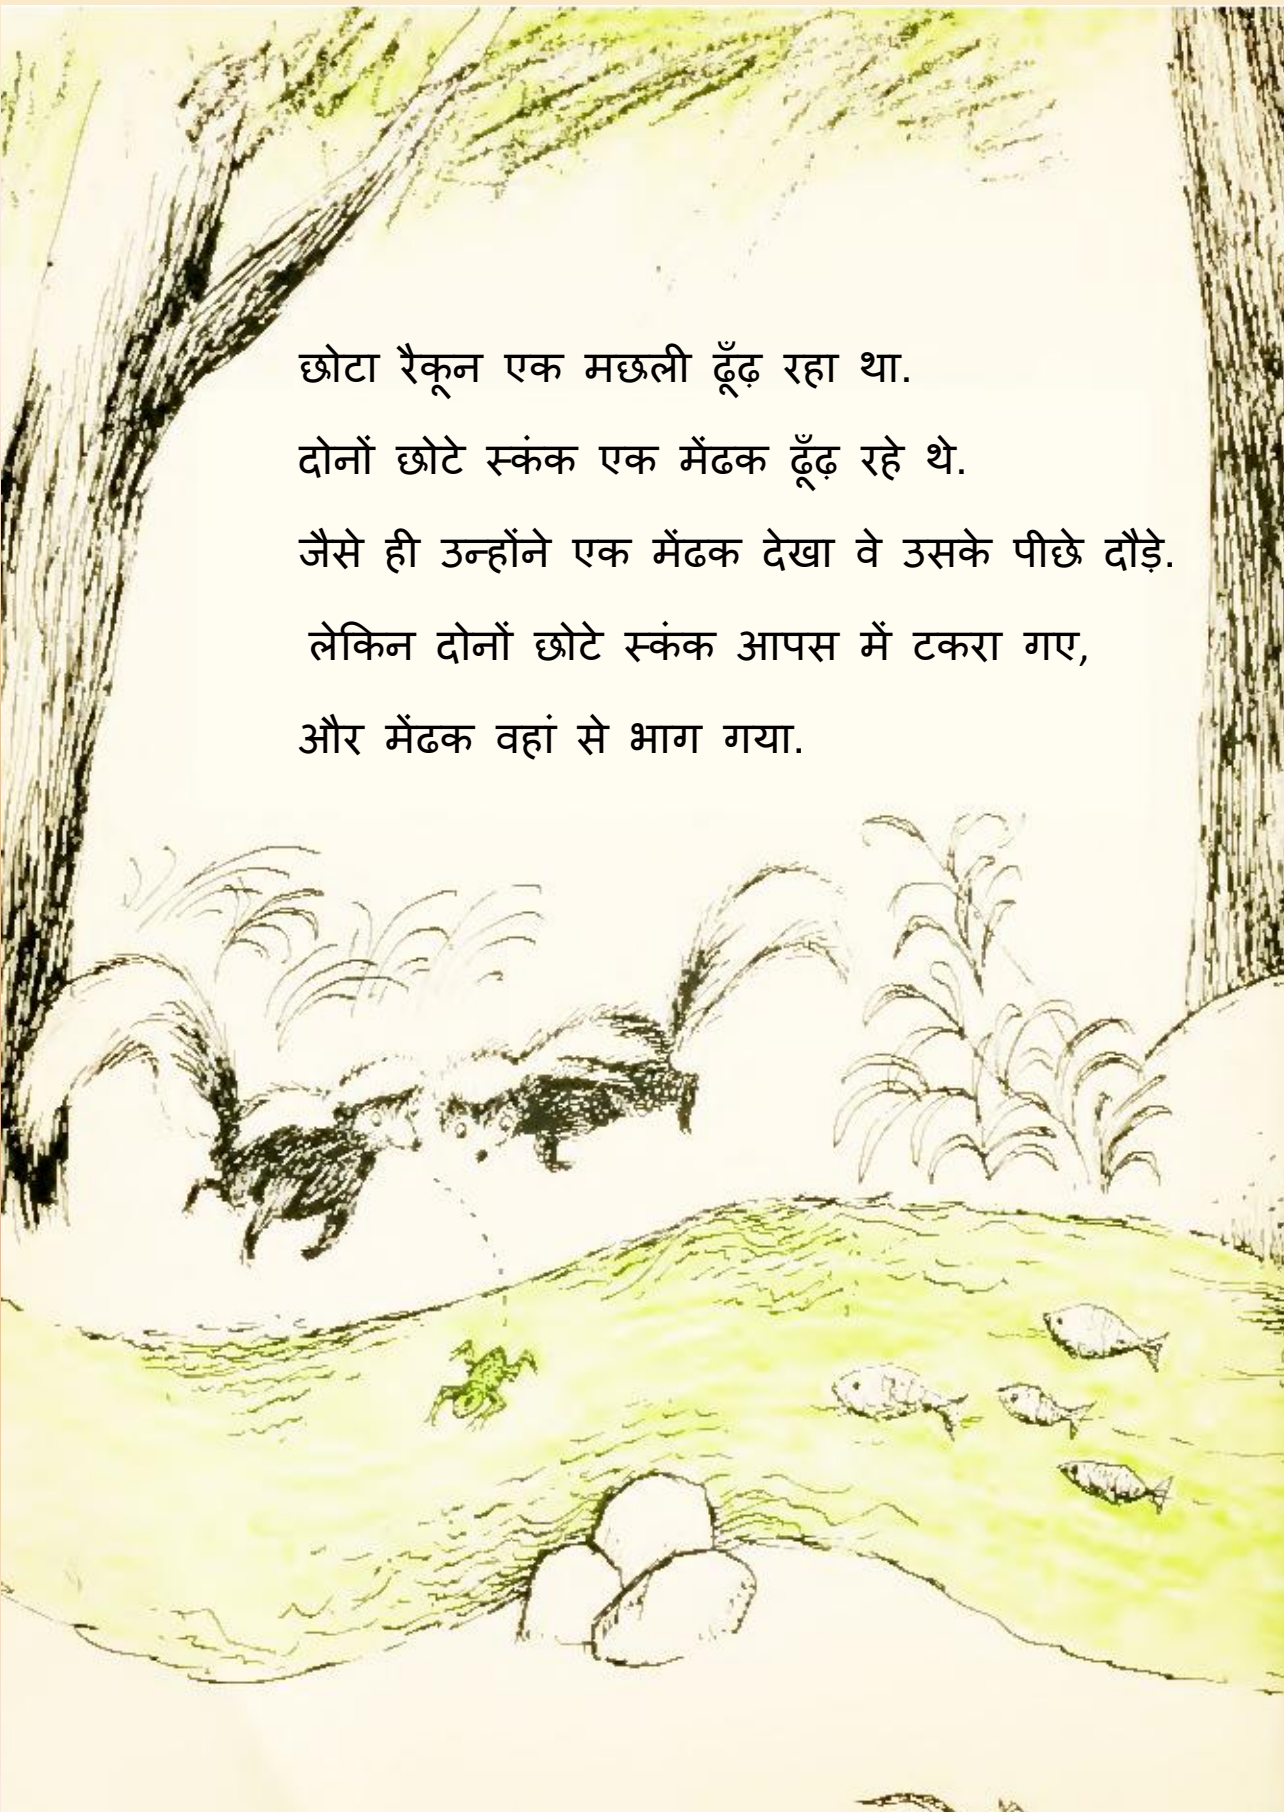 छोटा रैकून एक मछली ढूँढ़ रहा था.
दोनों छोटे स्कंक एक मेंढक ढूँढ़ रहे थे.
जैसे ही उन्होंने एक मेंढक देखा वे उसके पीछे दौड़े.
लेकिन दोनों छोटे स्कंक आपस में टकरा गए,
और मेंढक वहां से भाग गया.